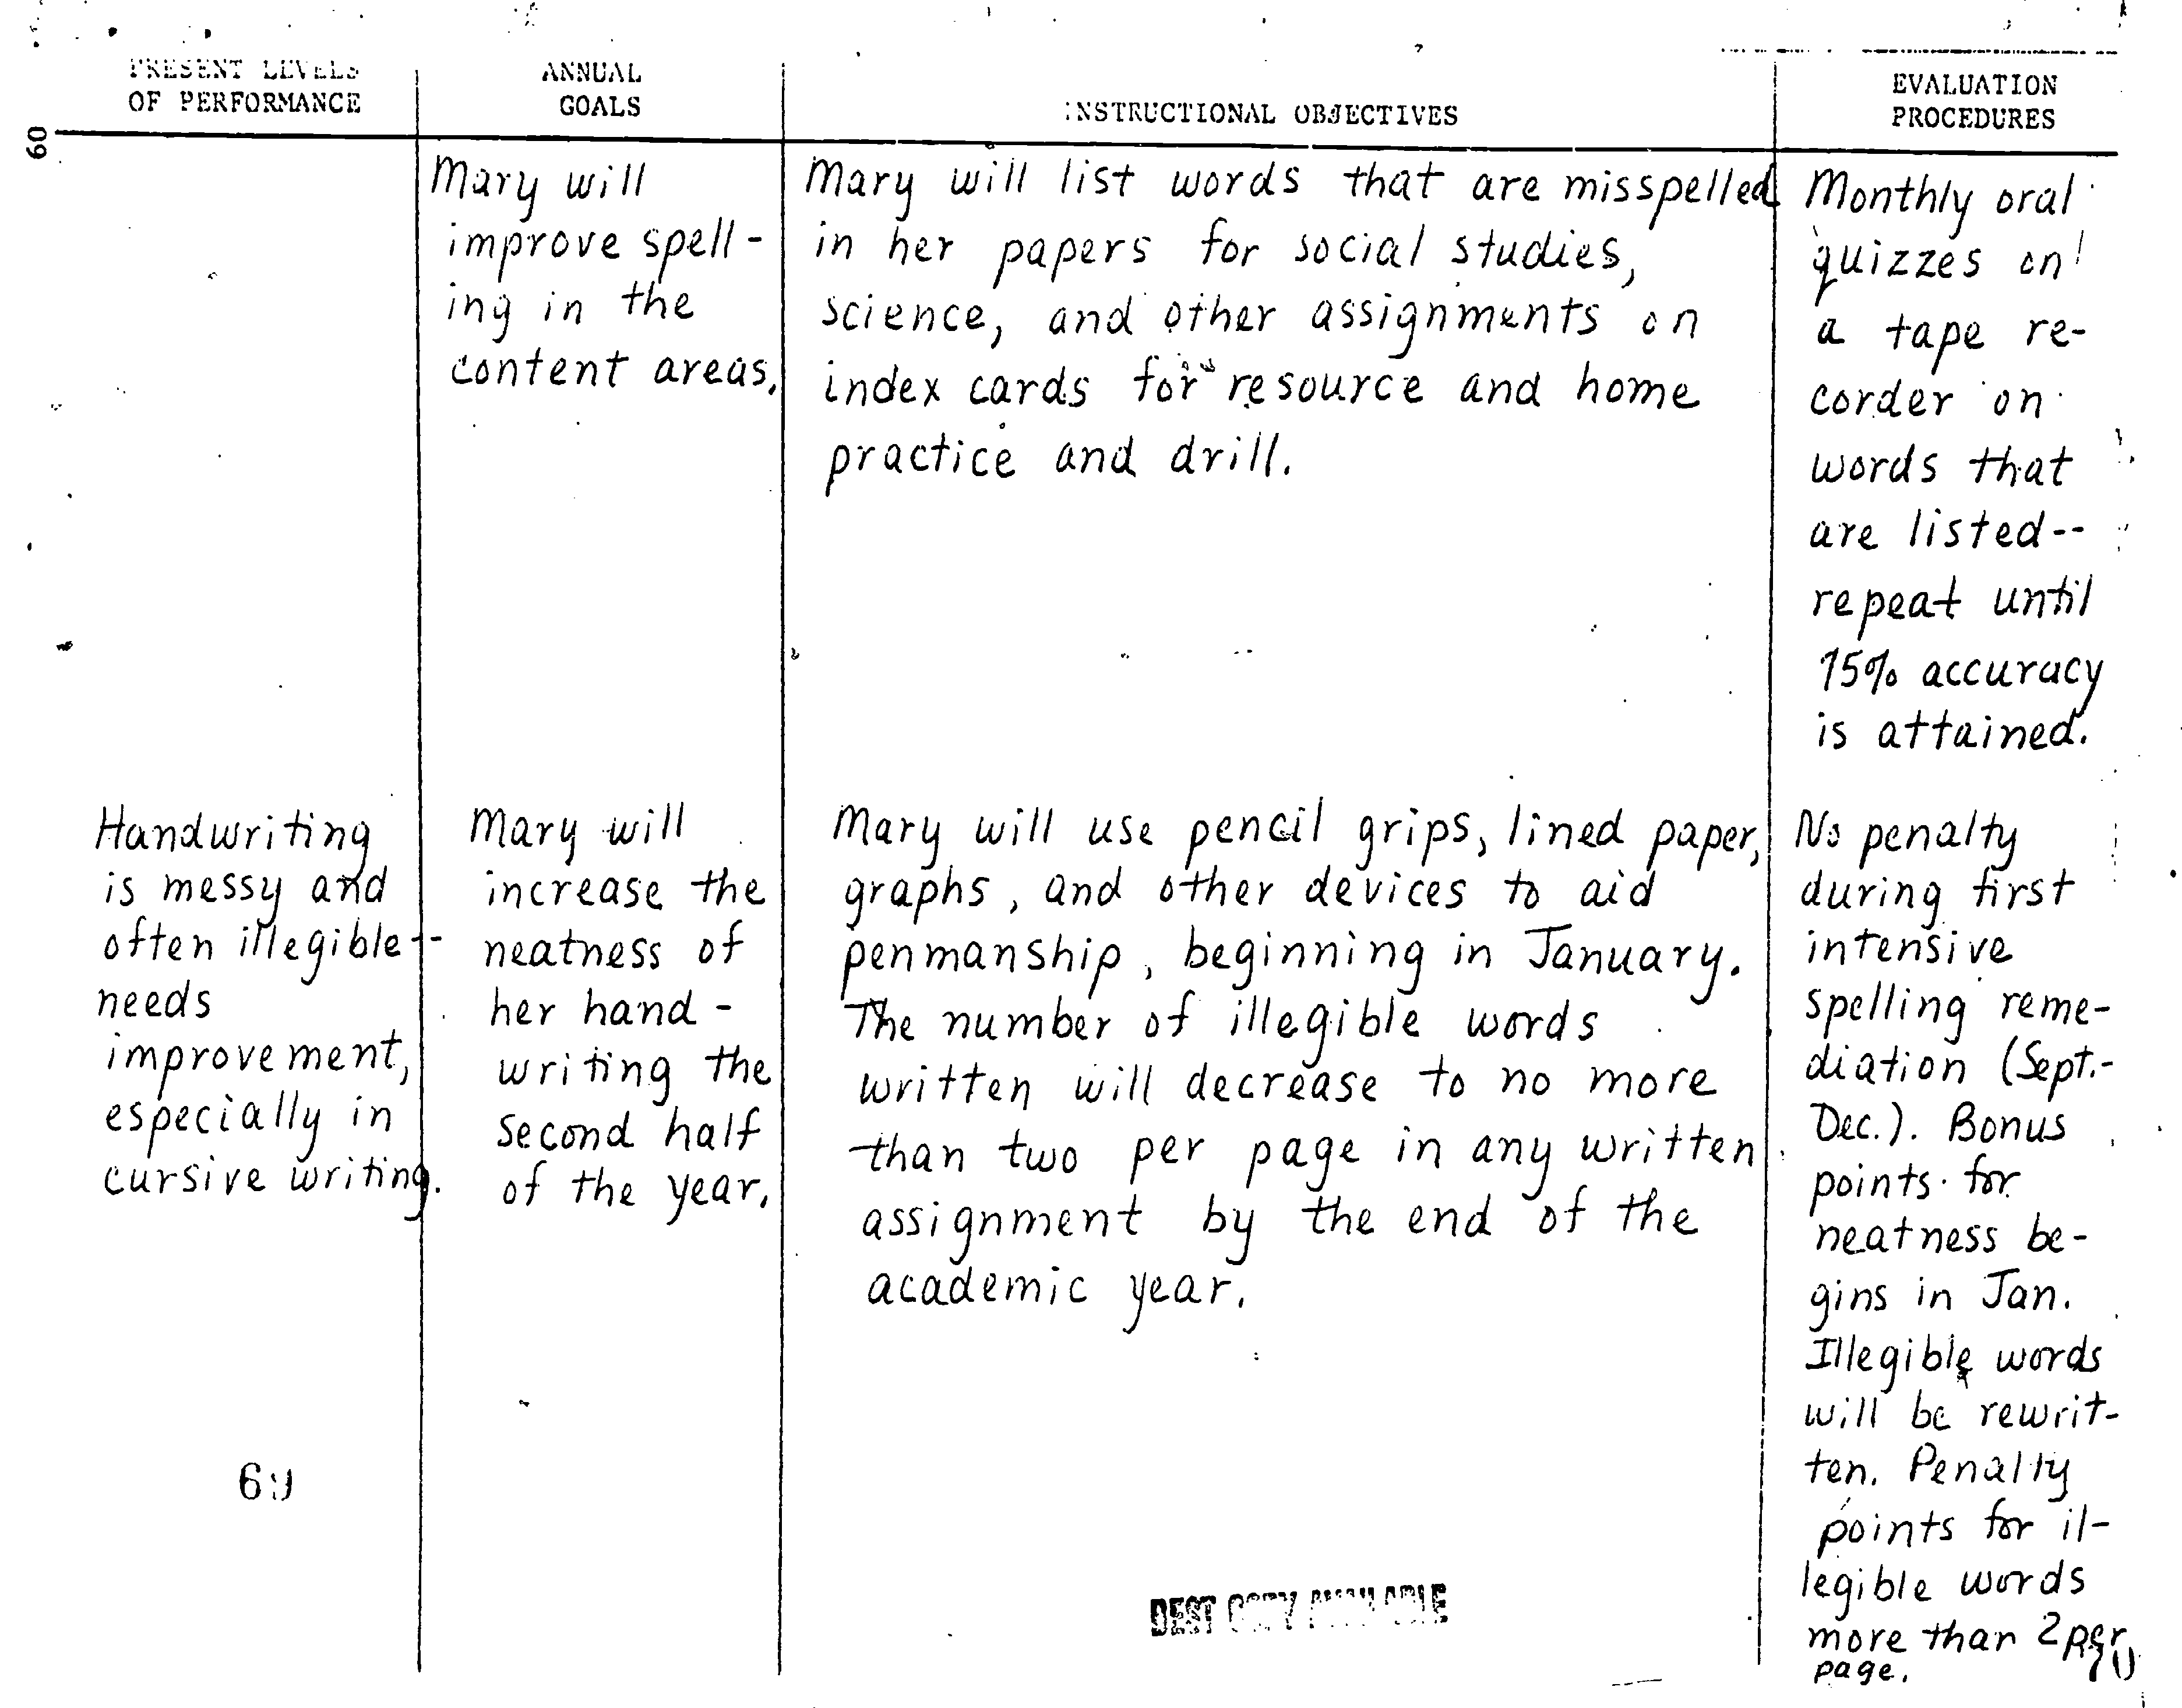 PRESENT LEVELS
OF PERFORMANCE
ANNUAL
GOALS
INSTRUCTIONAL OBJECTIVES
EVALUATION
PROCEDURES
60
Mary will
improve spell-
ing in the
content areas.
Mary will list words that are misspelled
in her papers for social studies,
science, and other assignments on
index cards for resource and home
practice and drill.
Monthly oral
quizzes on
a tape re-
corder on
words that
are listed--
repeat until
% accuracy
is attained.
Handwriting
is messy and
often illegible--
needs
improvement,
especially in
cursive writing.
Mary will
increase the
neatness of
her hand-
writing the
second half
of the year.
Mary will use pencil grips, lined paper,
graphs, and other devices to aid
penmanship, beginning in January.
The number of illegible words
written will decrease to no more
than two per page in any written
assignment by the end of the
academic year.
No penalty
during first
intensive
spelling reme-
diation (Sept.-
Dec.). Bonus
points for
neatness be-
gins in Jan.
Illegible words
will be rewrit-
ten. Penalty
points for il-
legible words
more than 2 per
page.
BEST COPY AVAILABLE